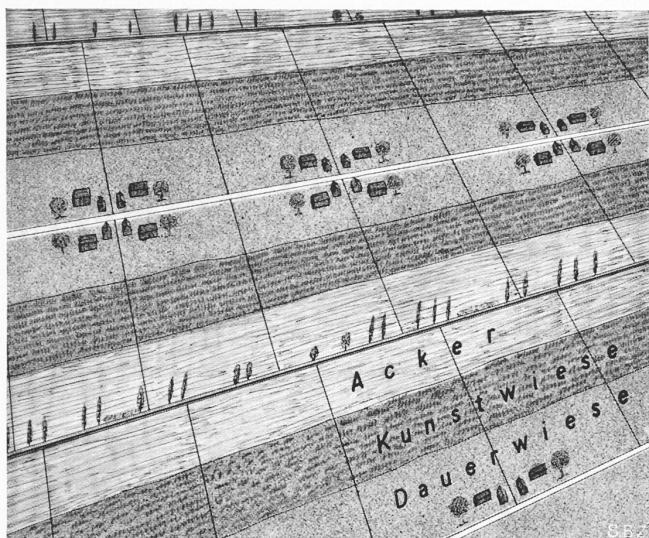 Acker
Kunstwiese
Dauerwiese
SBZ